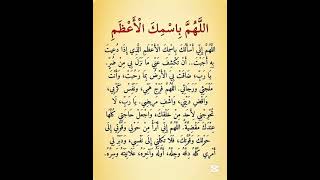 اللَّهُمَّ بِاسْمِكَ الْأَعْظَمِ
اللَّهُمَّ إِنِّي أَسْأَلُكَ بِاسْمِكَ الْأَعْظَمِ الَّذِي إِذَا دُعِيتَ
بِهِ أَجَبْتَ.. أَنْ تَكْشِفَ عَنِّي مَا نَزَلَ بِي مِنْ ضُرٍّ.
يَا رَبِّ، ضَاقَتْ بِيَ الْأَرْضُ بِمَا رَحُبَتْ، وَأَنْتَ
مَلْجَئِي وَرَجَائِي. اللَّهُمَّ فَرِّجْ هَمِّي، وَنَفِّسْ كَرْبِي،
وَاقْضِ دَيْنِي، وَاشْفِ مَرِيضِي. يَا رَبِّ، لَا
تُحْوِجْنِي لِأَحَدٍ مِنْ خَلْقِكَ، وَاجْعَلْ حَاجَتِي كُلَّهَا
عِنْدَكَ مَقْضِيَّةً. اللَّهُمَّ إِنِّي أَبْرَأُ مِنْ حَوْلِي وَقُوَّتِي إِلَى
حَوْلِكَ وَقُوَّتِكَ، فَلَا تَكِلْنِي إِلَى نَفْسِي، وَدَبِّرْ لِي
أَمْرِي كُلَّهُ دِقَّهُ وَجِلَّهُ، أَوَّلَهُ وَآخِرَهُ، عَلَانِيَتَهُ وَسِرَّهُ.